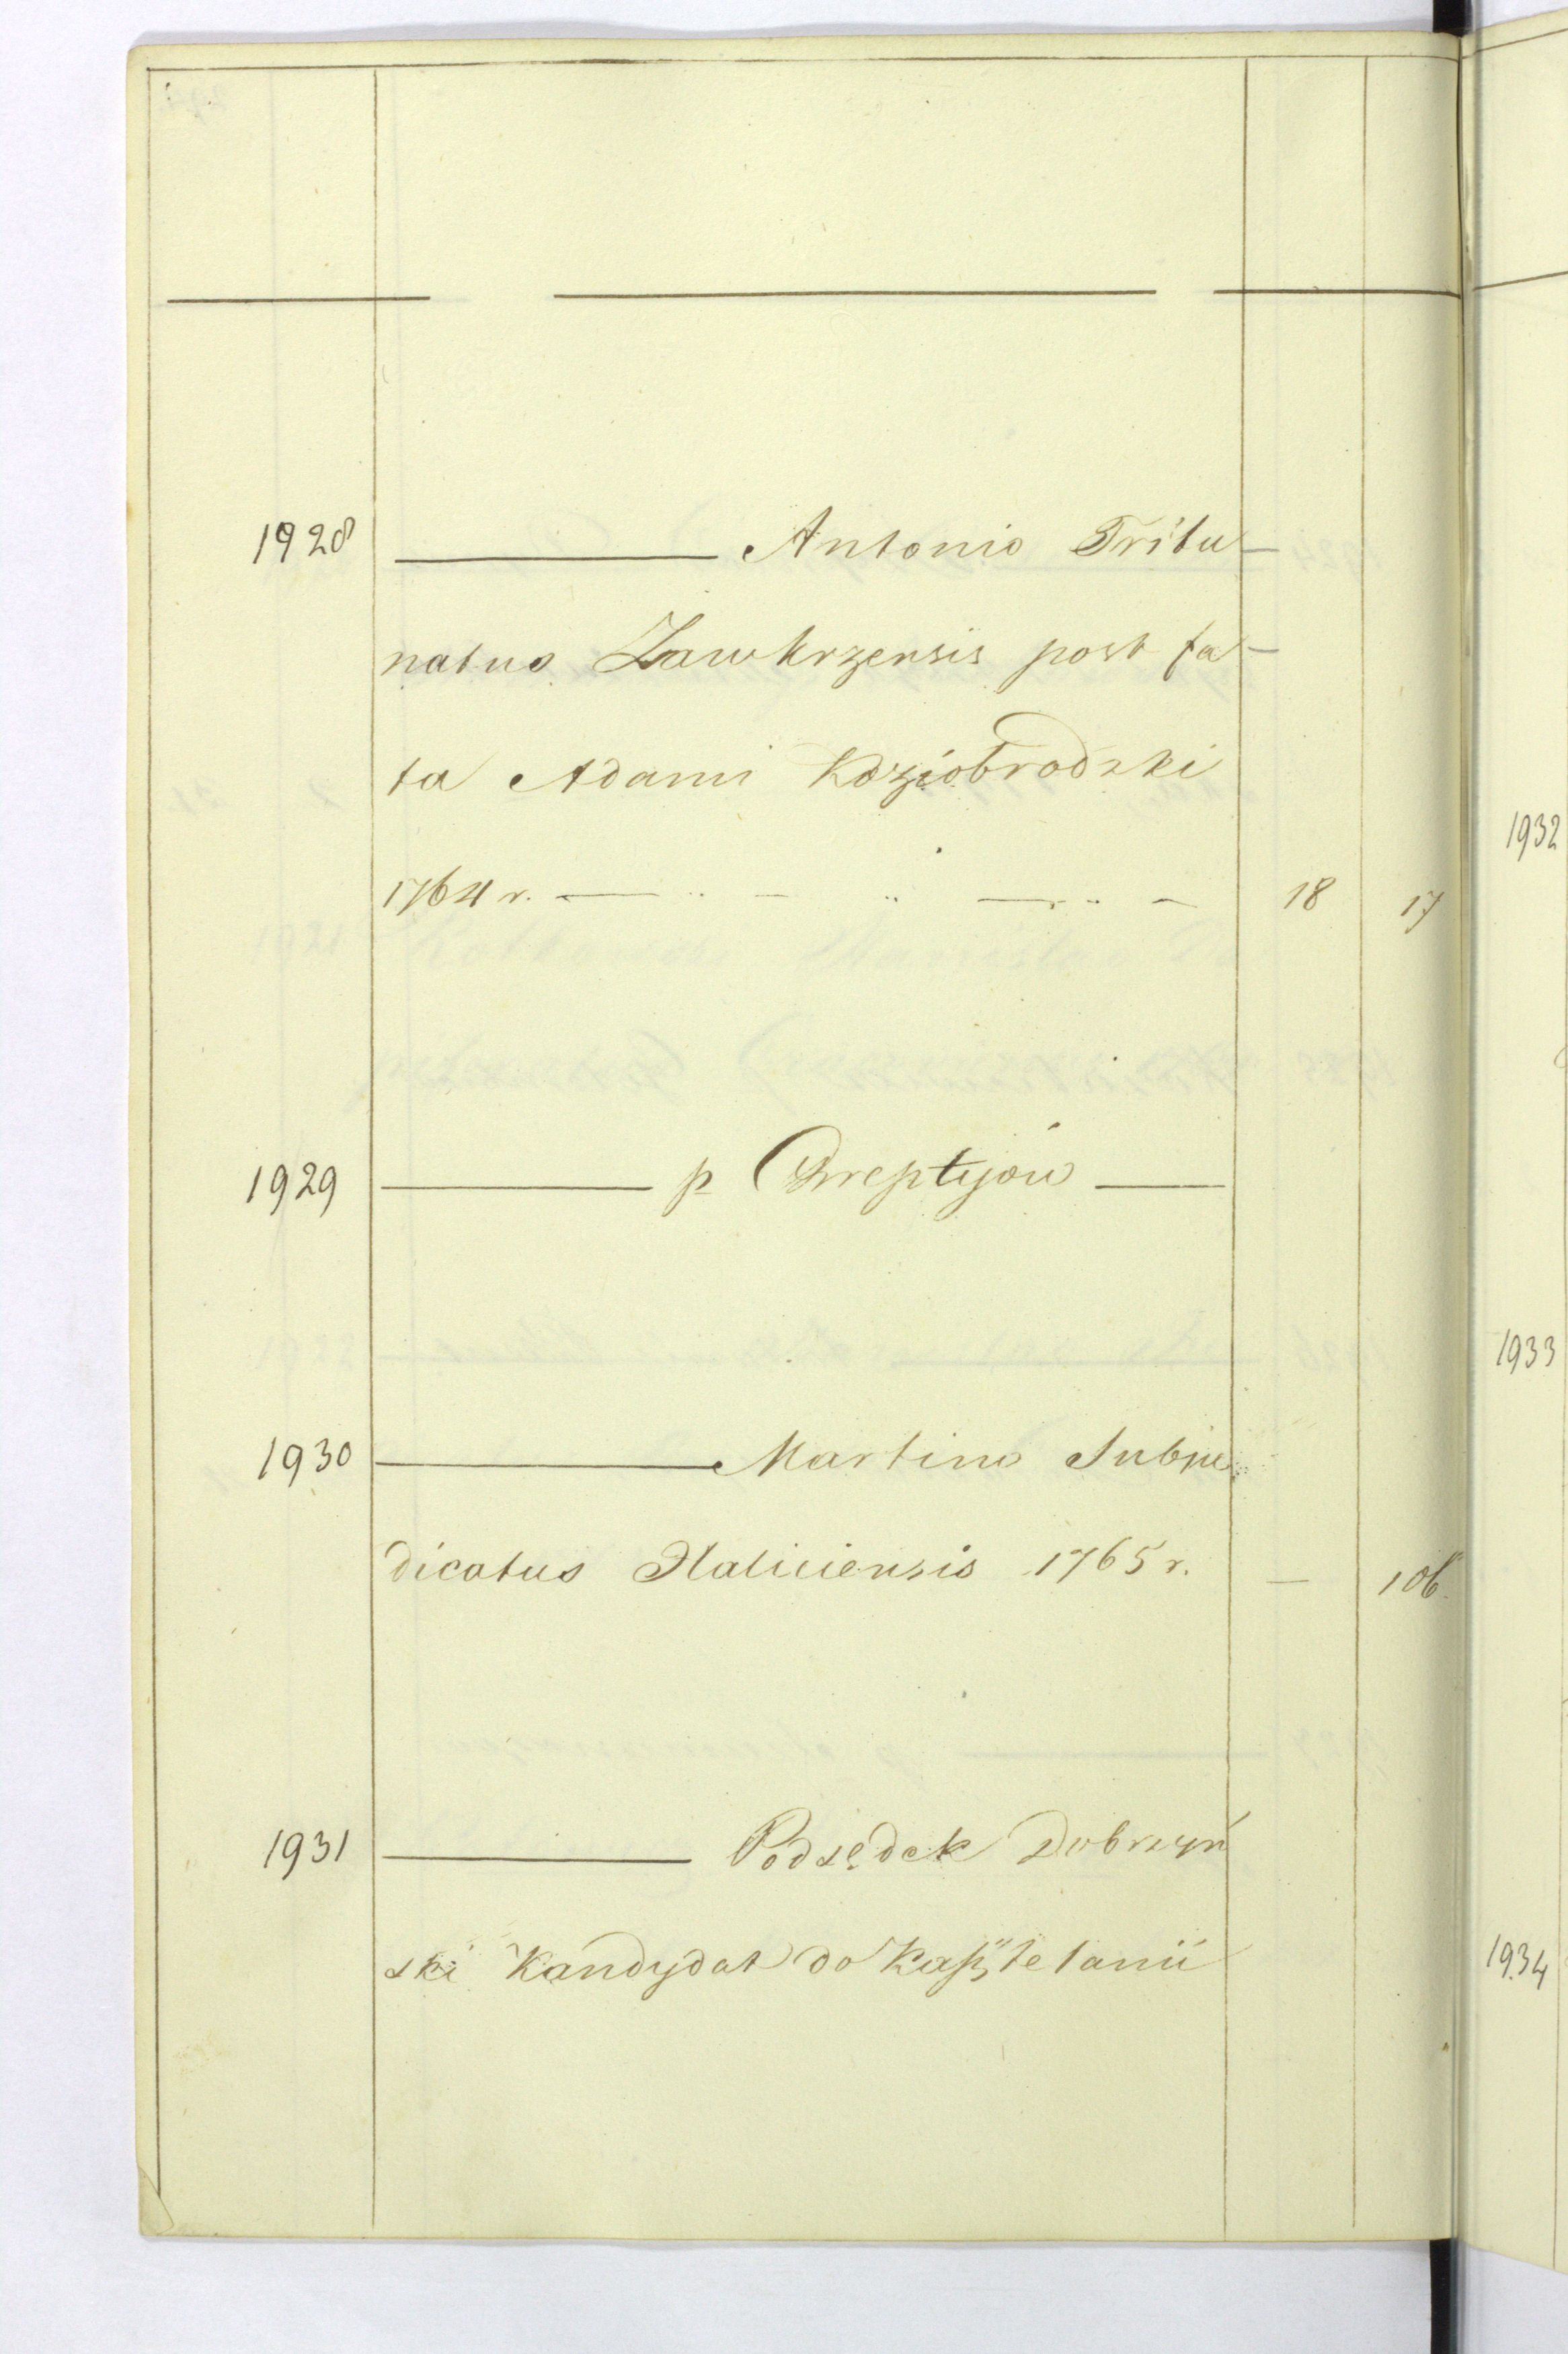 1928 — Antonio Tribu-
natus Zawkrzensis post fa-
ta Adami Kdziobrodzki
1764 r. — 18 17
1929 — p Arreptyów —
1930 — Martino Subju
dicatus Haliciensis 1765 r. — 106
1931 — Podsędek Dobrzyń
ski Kandydat do Kasztelanii
1932
1933
1934